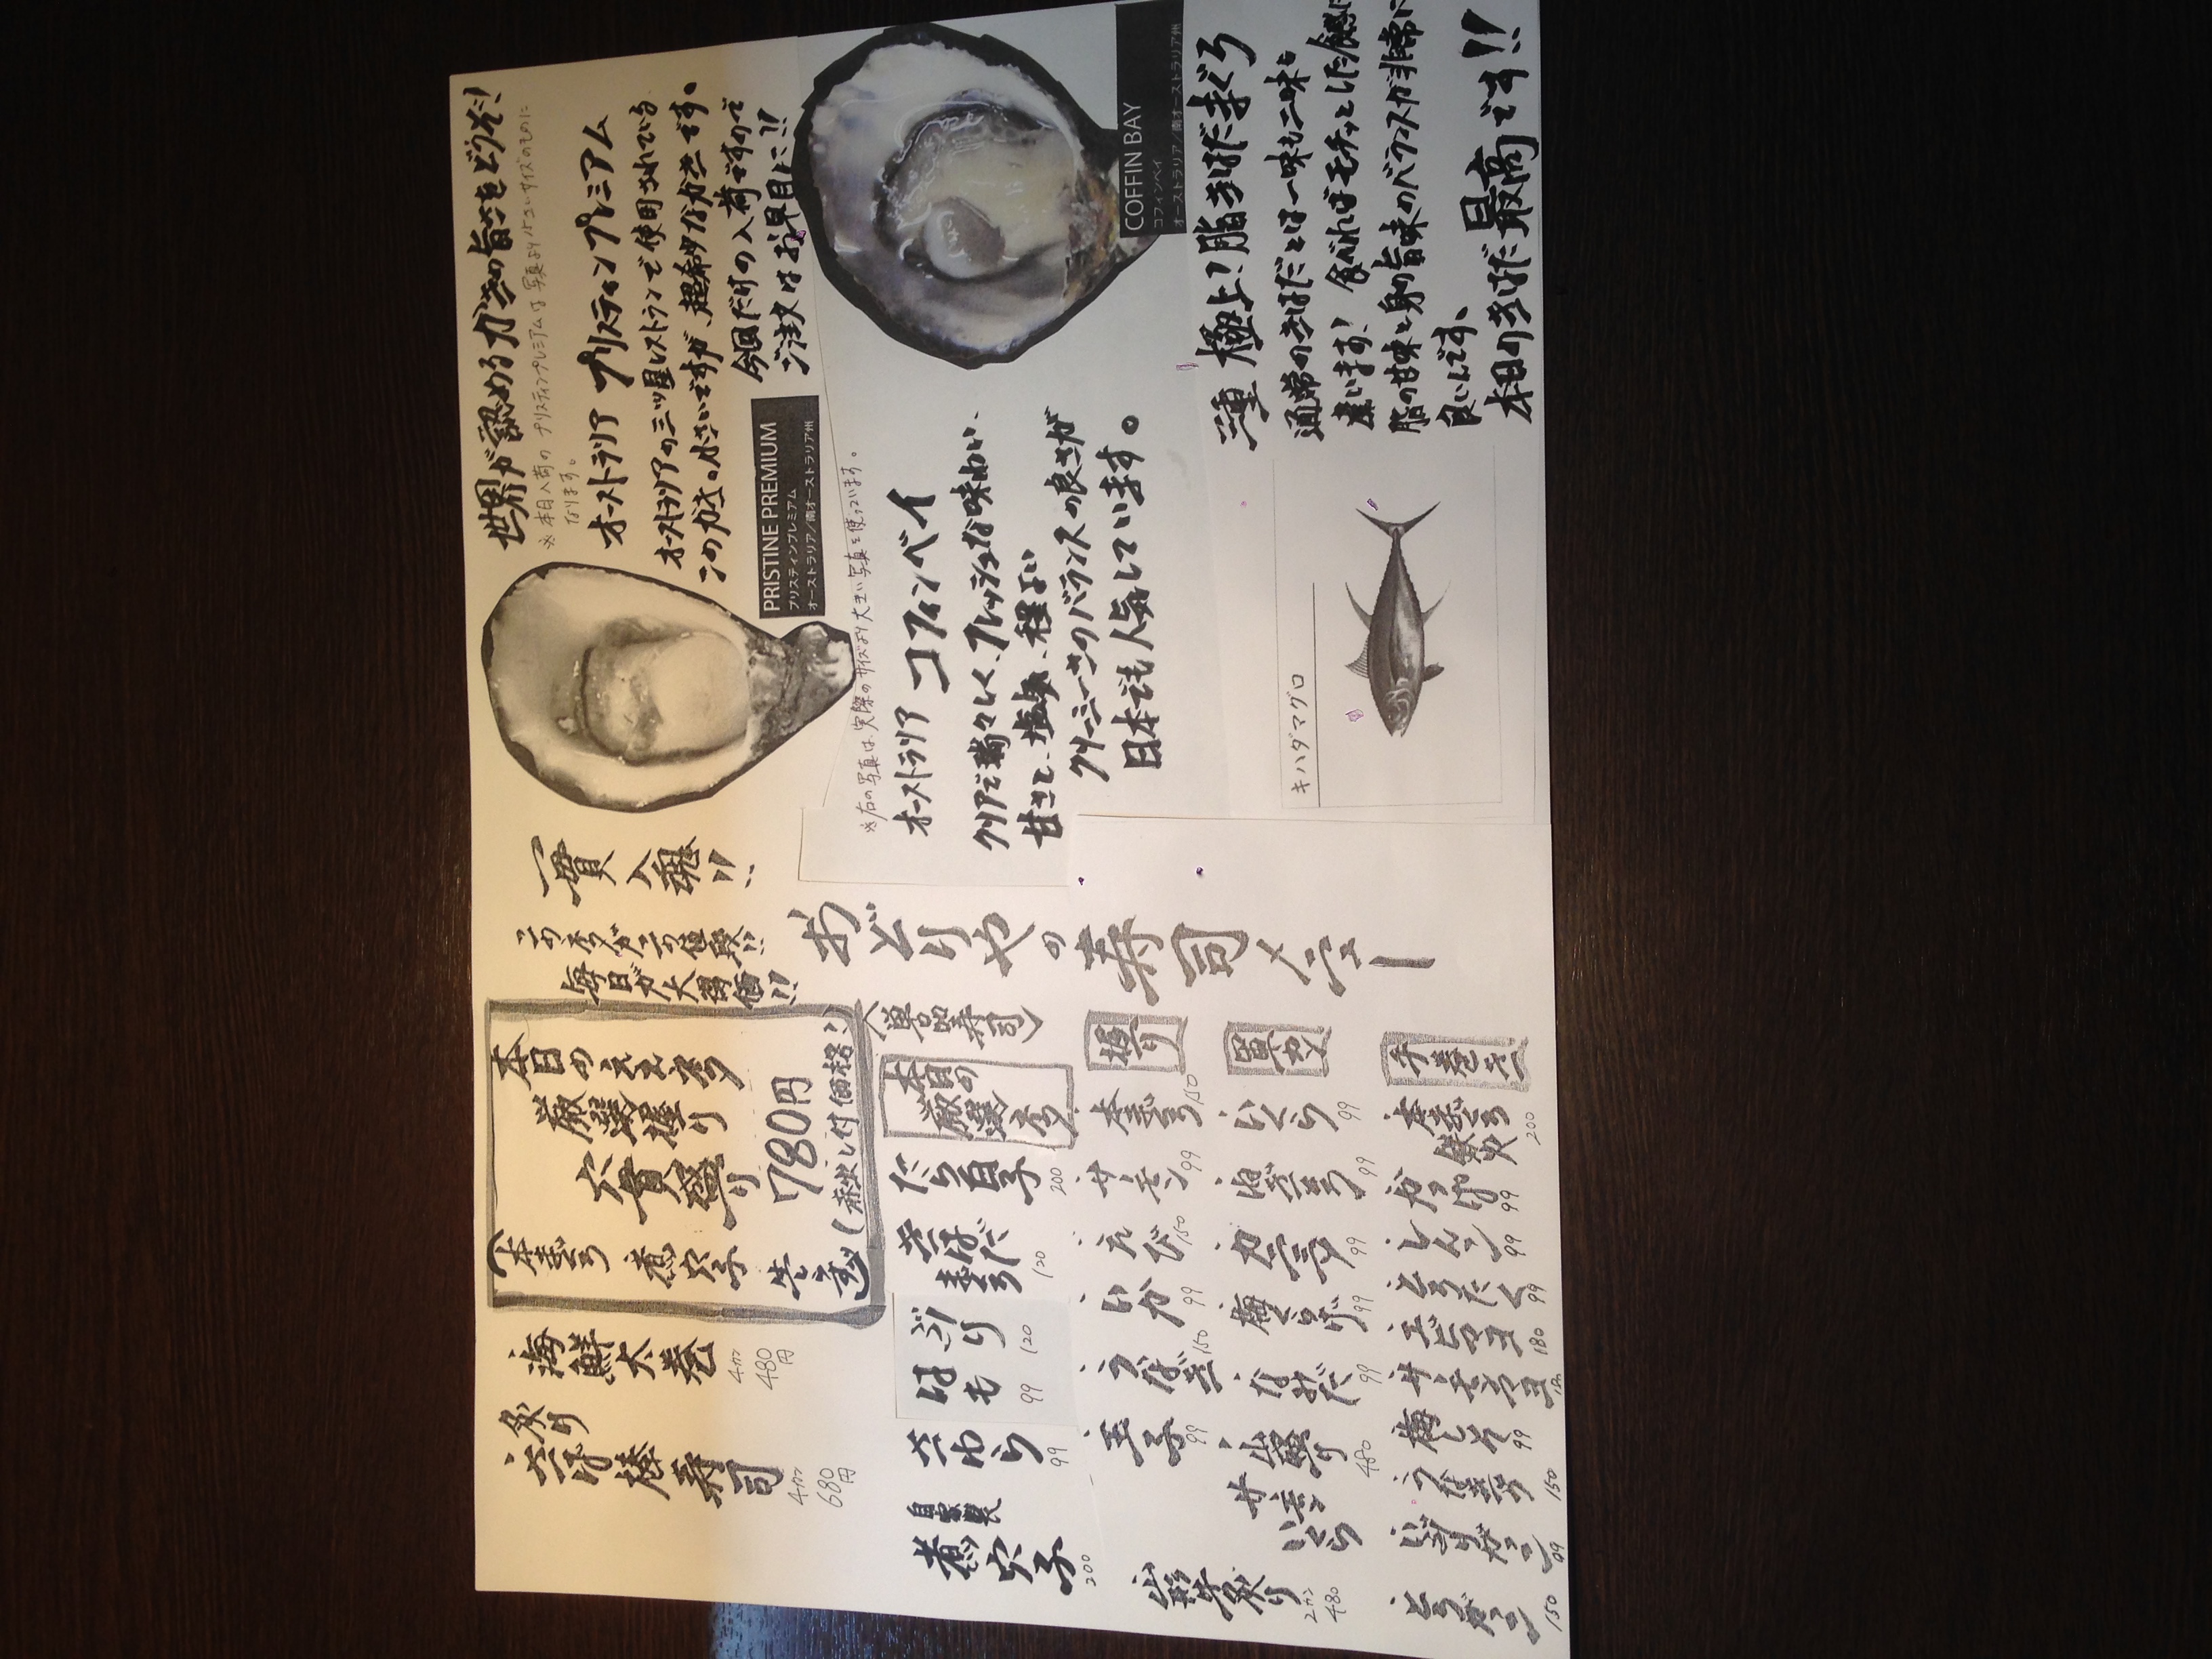 世界が認めるガキの旨さをどうぞ!
※本日入荷のプリスティンプレミアムは写真より小さいサイズのものに
なります。
オーストラリア プリスティンプレミアム
オーストラリアの三ツ星レストランで使用されている
このガキ。小さいですが、超希少なガキです。
今回だけの入荷ですので
ご注文はお早目に!!
PRISTINE PREMIUM
プリスティンプレミアム
オーストラリア/南オーストラリア州
※右の写真は、実際のサイズより大きい写真を使っています。
オーストラリア コフィンベイ
クリアで瑞々しく、フレッシュな味わい、
甘さと、塩気、程よい
クリーミーさのバランスの良さが
日本でも人気しています。
COFFIN BAY
コフィンベイ
オーストラリア/南オーストラリア州
三重 極上!脂きはだまぐろ
通常のきはだとは一味も二味も
違います!食べればモチッとした食感に
脂の甘味と身の旨味のバランスが非常に
良いんです。
本日のきはだ最高です!!
キハダマグロ
おどりやの寿司メニュー
一貫入魂!!
このネタがこの値段!!
毎日が大特価!!
本日のええネタ
厳選握り
六貫盛り
780円
(赤出し付価格)
(本まぐろ
煮穴子
生うに)
海鮮太巻
4カン
480円
炙り
さば棒寿司
4カン
680円
〈単品寿司〉
本日の
厳選ネタ
だら白子 200
きはだまぐろ 120
ぶり 120
はも 99
さわら 99
自家製
煮穴子 200
握り
本まぐろ 150
サーモン 99
えび 150
いか 99
うなぎ 150
玉子 99
山形牛炙り
2カン
480
軍カン
いくら 99
ねぎまぐろ 99
カニミソ 99
梅くらげ 99
なめたけ 99
山盛り
サーモンいくら 480
手巻き
本まぐろ鉄火 200
かっぱ 99
しんこ 99
とろたく 99
エビマヨ 180
サーモンマヨ
梅しそ 99
うなきゅう 150
いぶりガッコ 99
とろガッコ 150